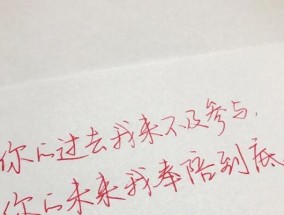 你的过去我来不及参与,
你的未来我奉陪到底